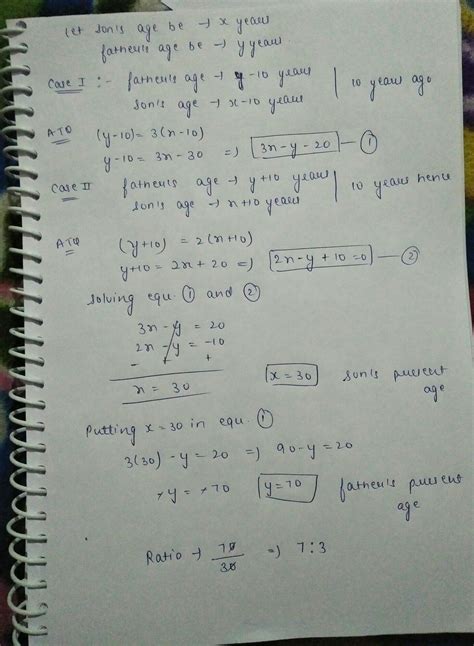 Let son's age be → x years
father's age be → y years
Case I :- father's age → y-10 years | 10 years ago
son's age → x-10 years
ATQ (y-10) = 3(x-10)
y-10 = 3x-30 => 3x-y-20 — ①
Case II father's age → y+10 years | 10 years hence
son's age → x+10 years
ATQ (y+10) = 2(x+10)
y+10 = 2x+20 => 2x-y+10=0 — ②
Solving equ. ① and ②
3x-y = 20
2x-y = -10
- + +
x = 30 x=30 son's present age
Putting x=30 in equ. ①
3(30)-y = 20 => 90-y=20
-y = -70 y=70 father's present age
Ratio → 70/30 => 7:3